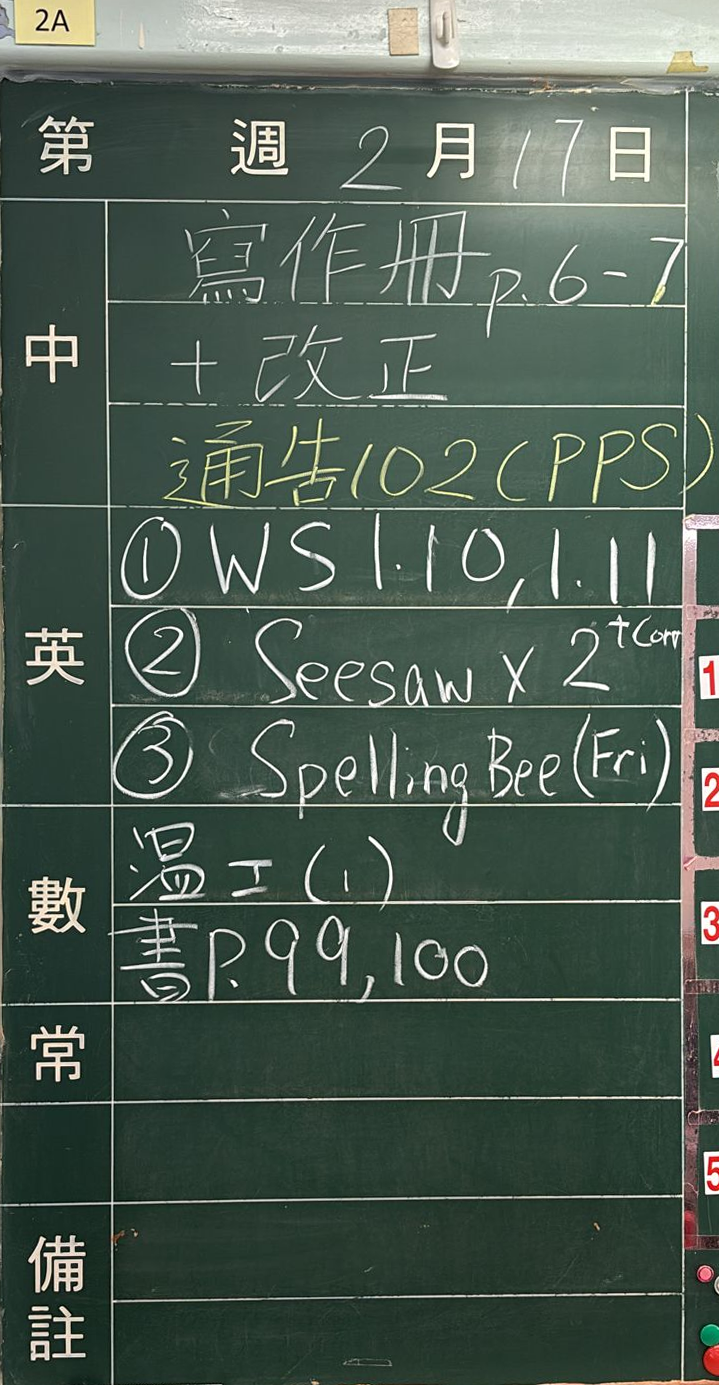 2A
第 週 2 月 17 日
中
寫作冊 p. 6-7
+ 改正
通告102(PPS)
英
① WS 1.10, 1.11
② Seesaw x 2 +Corr
③ Spelling Bee (Fri)
數
溫工(1)
書P.99,100
常
備註
1
2
3
4
5